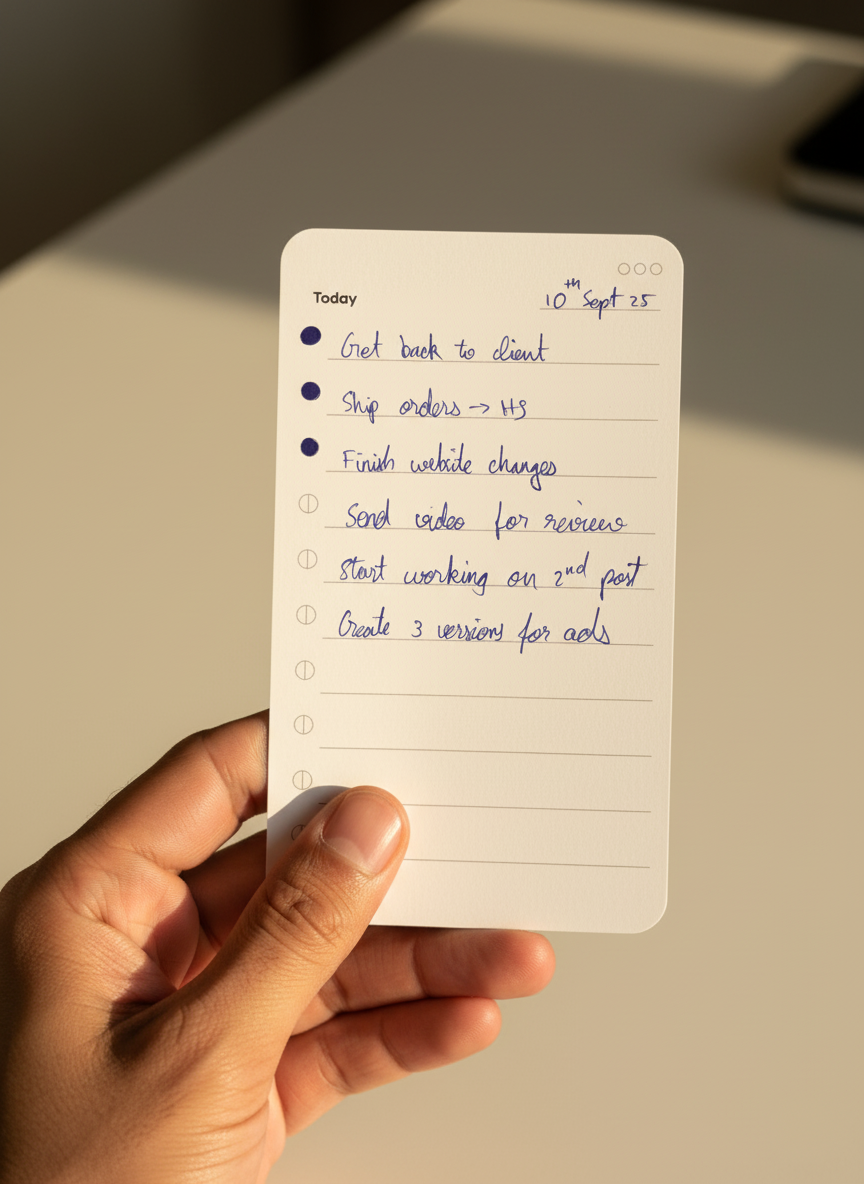 Today
10th Sept 25
Get back to client
Ship orders → HS
Finish website changes
Send video for review
Start working on 2nd post
Create 3 versions for ads